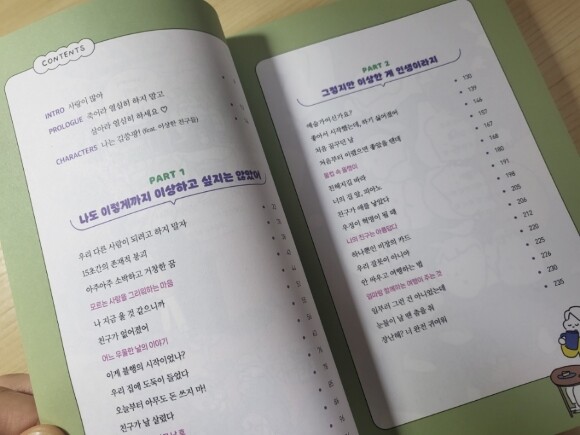 CONTENTS
INTRO 사람이 많아
PROLOGUE 죽어라 열심히 하지 말고
살아라 열심히 하세요 ♡
CHARACTERS 나는 김중쟁! (feat. 이상한 친구들)
PART 1
나도 이렇게까지 이상하고 싶지는 않았어
우리 다른 사람이 되려고 하지 말자
15초간의 존재적 붕괴
아주아주 소박하고 거창한 꿈
모르는 사람을 그리워하는 마음
나 지금 울 것 같으니까
친구가 잃어졌어
어느 우울한 날의 이야기
이게 불행의 시작이었나?
우리 집에 도둑이 들었다
오늘부터 아무도 돈 쓰지 마!
친구가 날 살렸다
PART 2
그렇지만 이상한 게 인생이라지
예술가이신가요?
좋아서 시작했는데, 뭐가 싫어졌어
처음 꿈꾸던 날
처음부터 이랬으면 좋았을 텐데
물컵 속 올챙이
친해지길 바라
너의 길 앞, 피아노
친구가 애를 낳았다
우정이 혁명이 될 때
나의 친구는 아름답다
하나뿐인 비장의 카드
우리 잘못이 아니야
안 싸우고 여행하는 법
엄마랑 함께하는 여행이 주는 것
일부러 그런 건 아니었는데
눈들이 날 땐 춤을 춰
장난해? 너 완전 귀여워
130
139
146
157
167
168
180
191
198
205
206
212
220
225
226
230
235